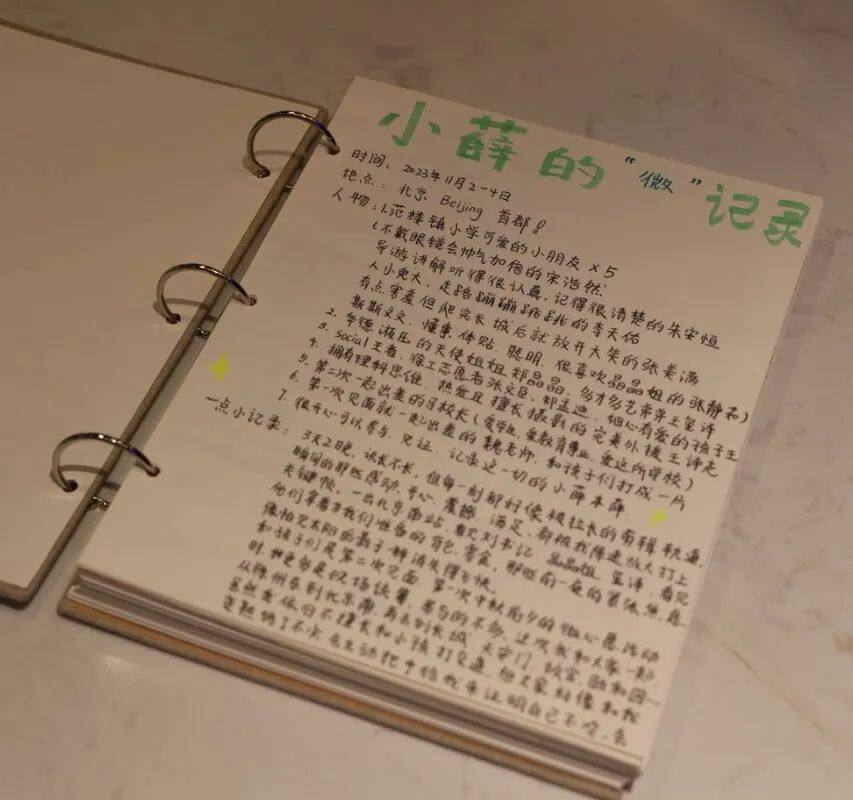 小薛的“微”记录
时间：2023年11月2-4日
地点：北京 Beijing 首都！
人物：1.范楼镇小学可爱的小朋友×5
(不戴眼镜会帅气加倍的宋浩然
导游讲解听得很认真，记得很清楚的朱安恒
人小鬼大、走路蹦蹦跳跳的李天佑
有点害羞但爬完长城后就放开大笑的张美满
斯斯文文、懂事、体贴、聪明、很喜欢晶晶姐的张静茹)
2. 华德液压的天使姐姐郑晶晶，多才多艺弟弟王玺译
3. Social王者、徐工志愿者张文臣、郝孟迪，细心有爱的孩子王
4. 拥有理科思维、热爱且擅长摄影的完美外援王诗尧
5. 第二次一起出差的马校长(爱学生，爱教育事业，爱这所学校)
6. 第一次见面就一起出差的魏老师，和孩子们打成一片
7. 很开心可以参与、见证、记录这一切的小薛本薛
一点小记录：3天2晚，说长不长，但每一刻都好像被拉长的剪辑轨道，
瞬间的那些感动、开心、震撼、满足，都被我降速放大打上
关键帧。一出北京南站，看见刘书记、晶晶姐、玺译，看见
他们拿着为我们准备的背包、零食，那些前一夜的紧张、焦虑
像怕见太阳的影子一样消失得飞快。
和孩子们是第二次见面，第一次中秋前夕的微心愿活动
时，我更多是以场统筹，参与的不多，这次我和大家一起，
从徐州东到北京南，再去到长城、天安门、故宫
虽然我依旧不擅长和小孩打交道，但大家好像和我
变熟络了不少，会主动把手给我来证明自己不冷，会